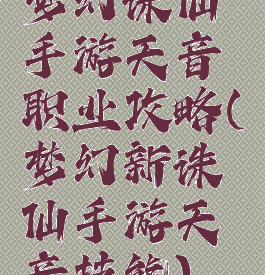 梦幻诛仙
手游天音
职业攻略(
梦幻新诛
仙手游天
音技能)